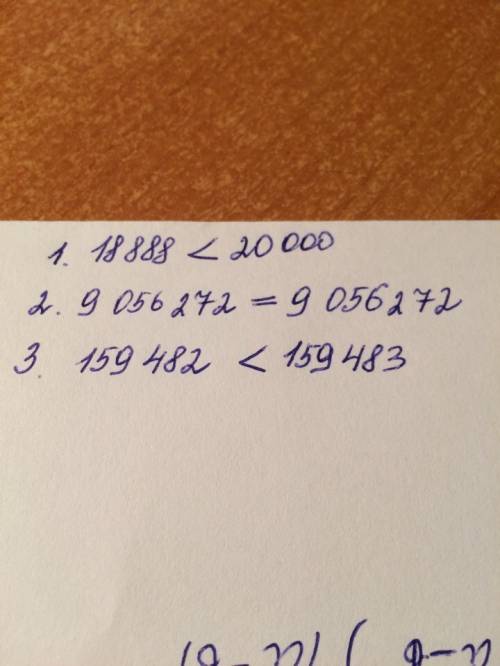 1. 18888 < 20 000
2. 9 056 272 = 9 056 272
3. 159 482 < 159 483